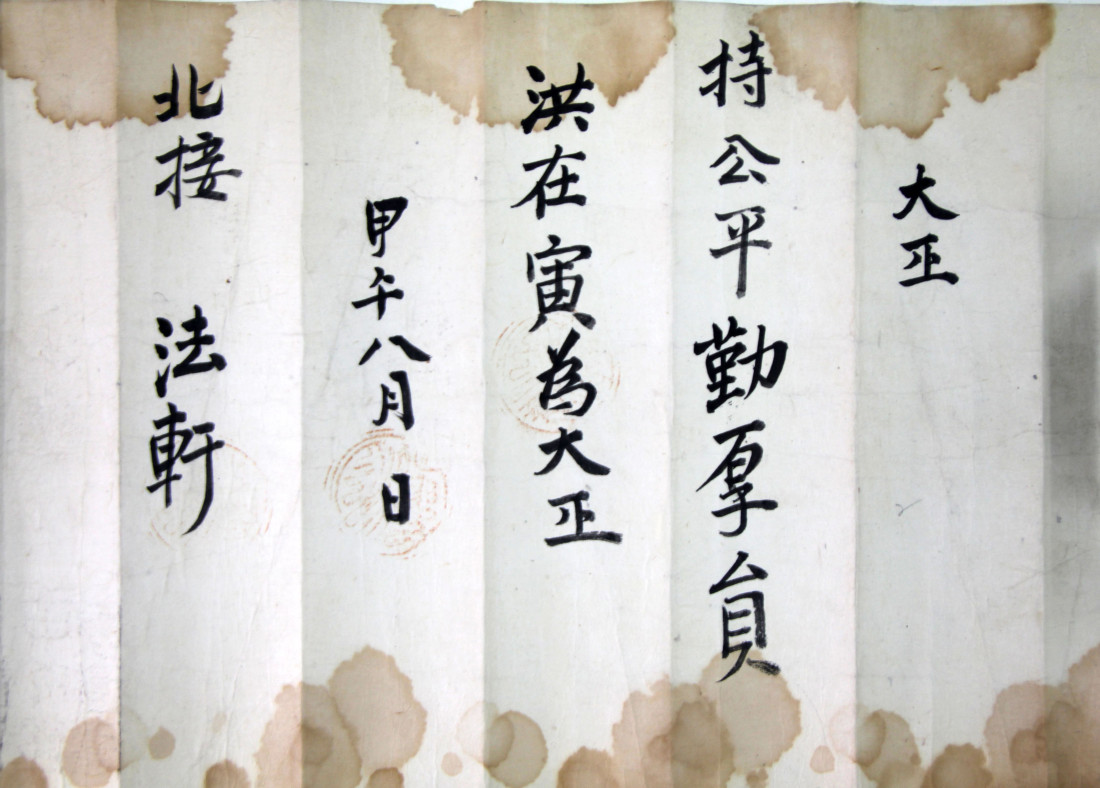 大正
持公平勤厚員
洪在寅為大正
甲午八月 日
北接 法軒